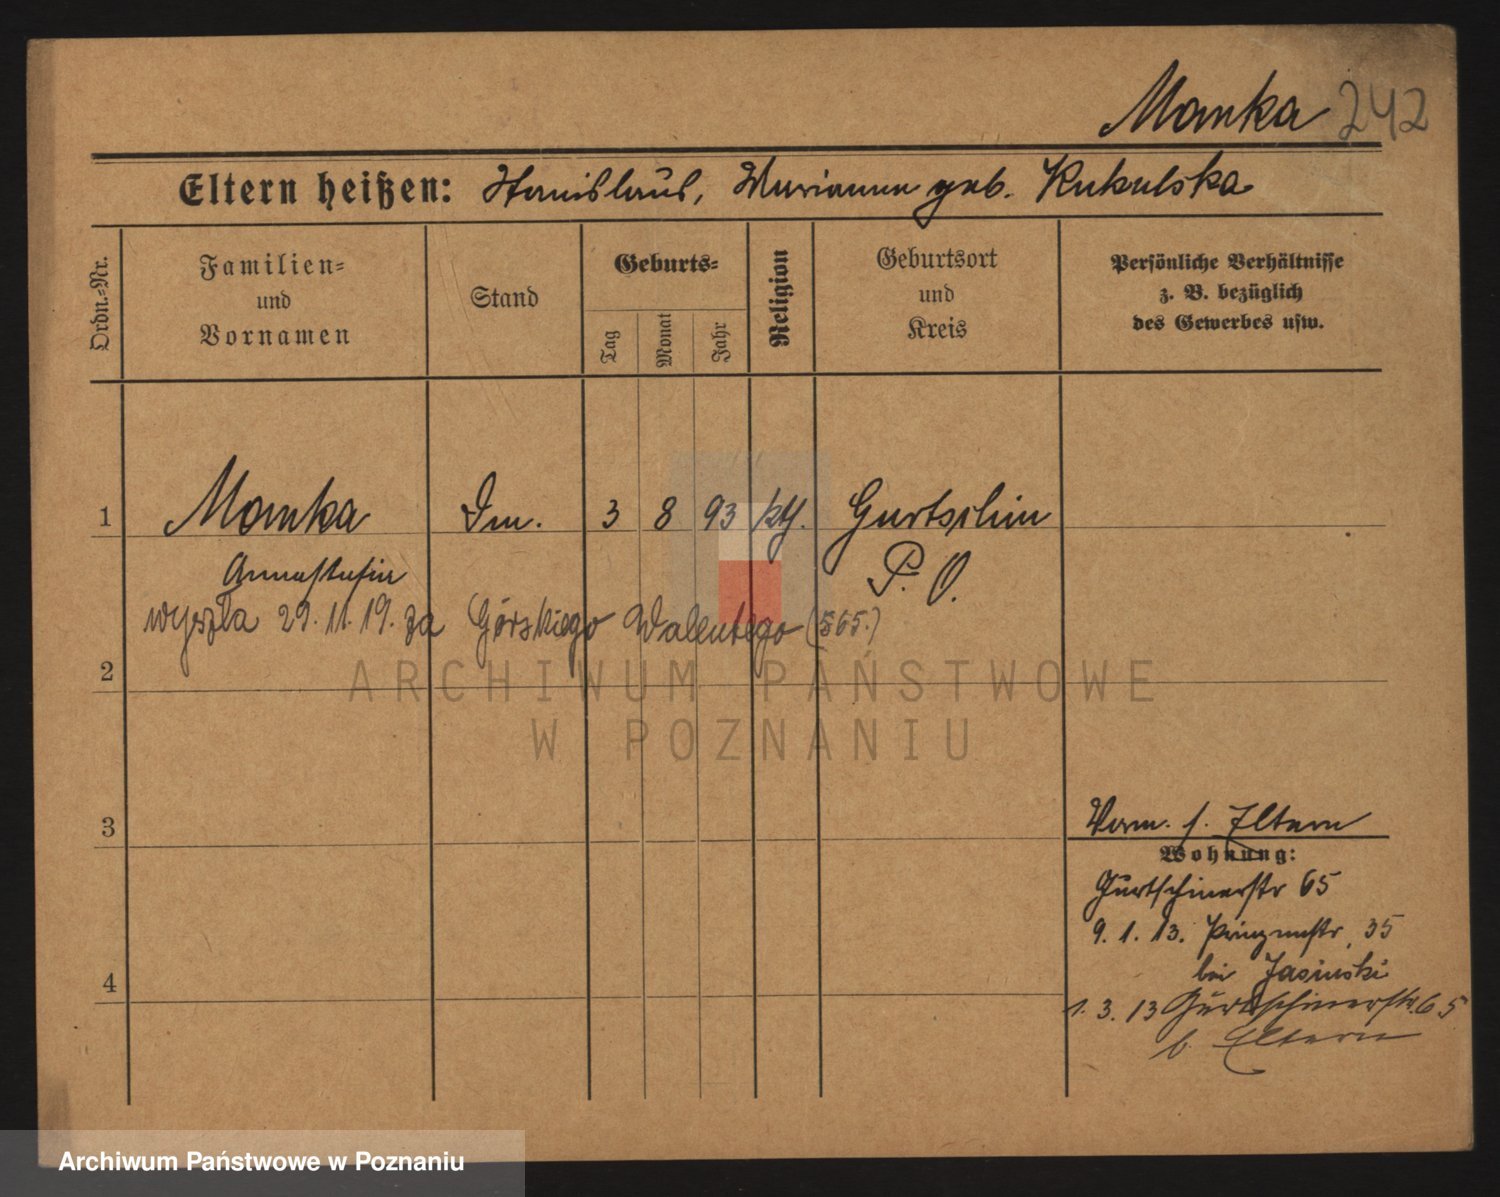 Manka 242
Eltern heißen: Stanislaus, Marianna geb. Kukulska
Ordn.=Nr.
Familien=
und
Vornamen
Stand
Geburts=
Tag
Monat
Jahr
Religion
Geburtsort
und
Kreis
Persönliche Verhältnisse
z. B. bezüglich
des Gewerbes usw.
1 Manka 3 8 93 kth. Gurtschin
P. O.
wyszła 29.11.19. za Górskiego Walentego (565.)
2
ARCHIWUM PAŃSTWOWE
W POZNANIU
3
Vorm. s. Eltern
Wohnung:
Gurtschinerstr 65
9. 1. 13. Prinzenstr. 35
bei Jasinski
4
1. 3. 13 Gurtschinerstr. 65
b. Eltern
Archiwum Państwowe w Poznaniu